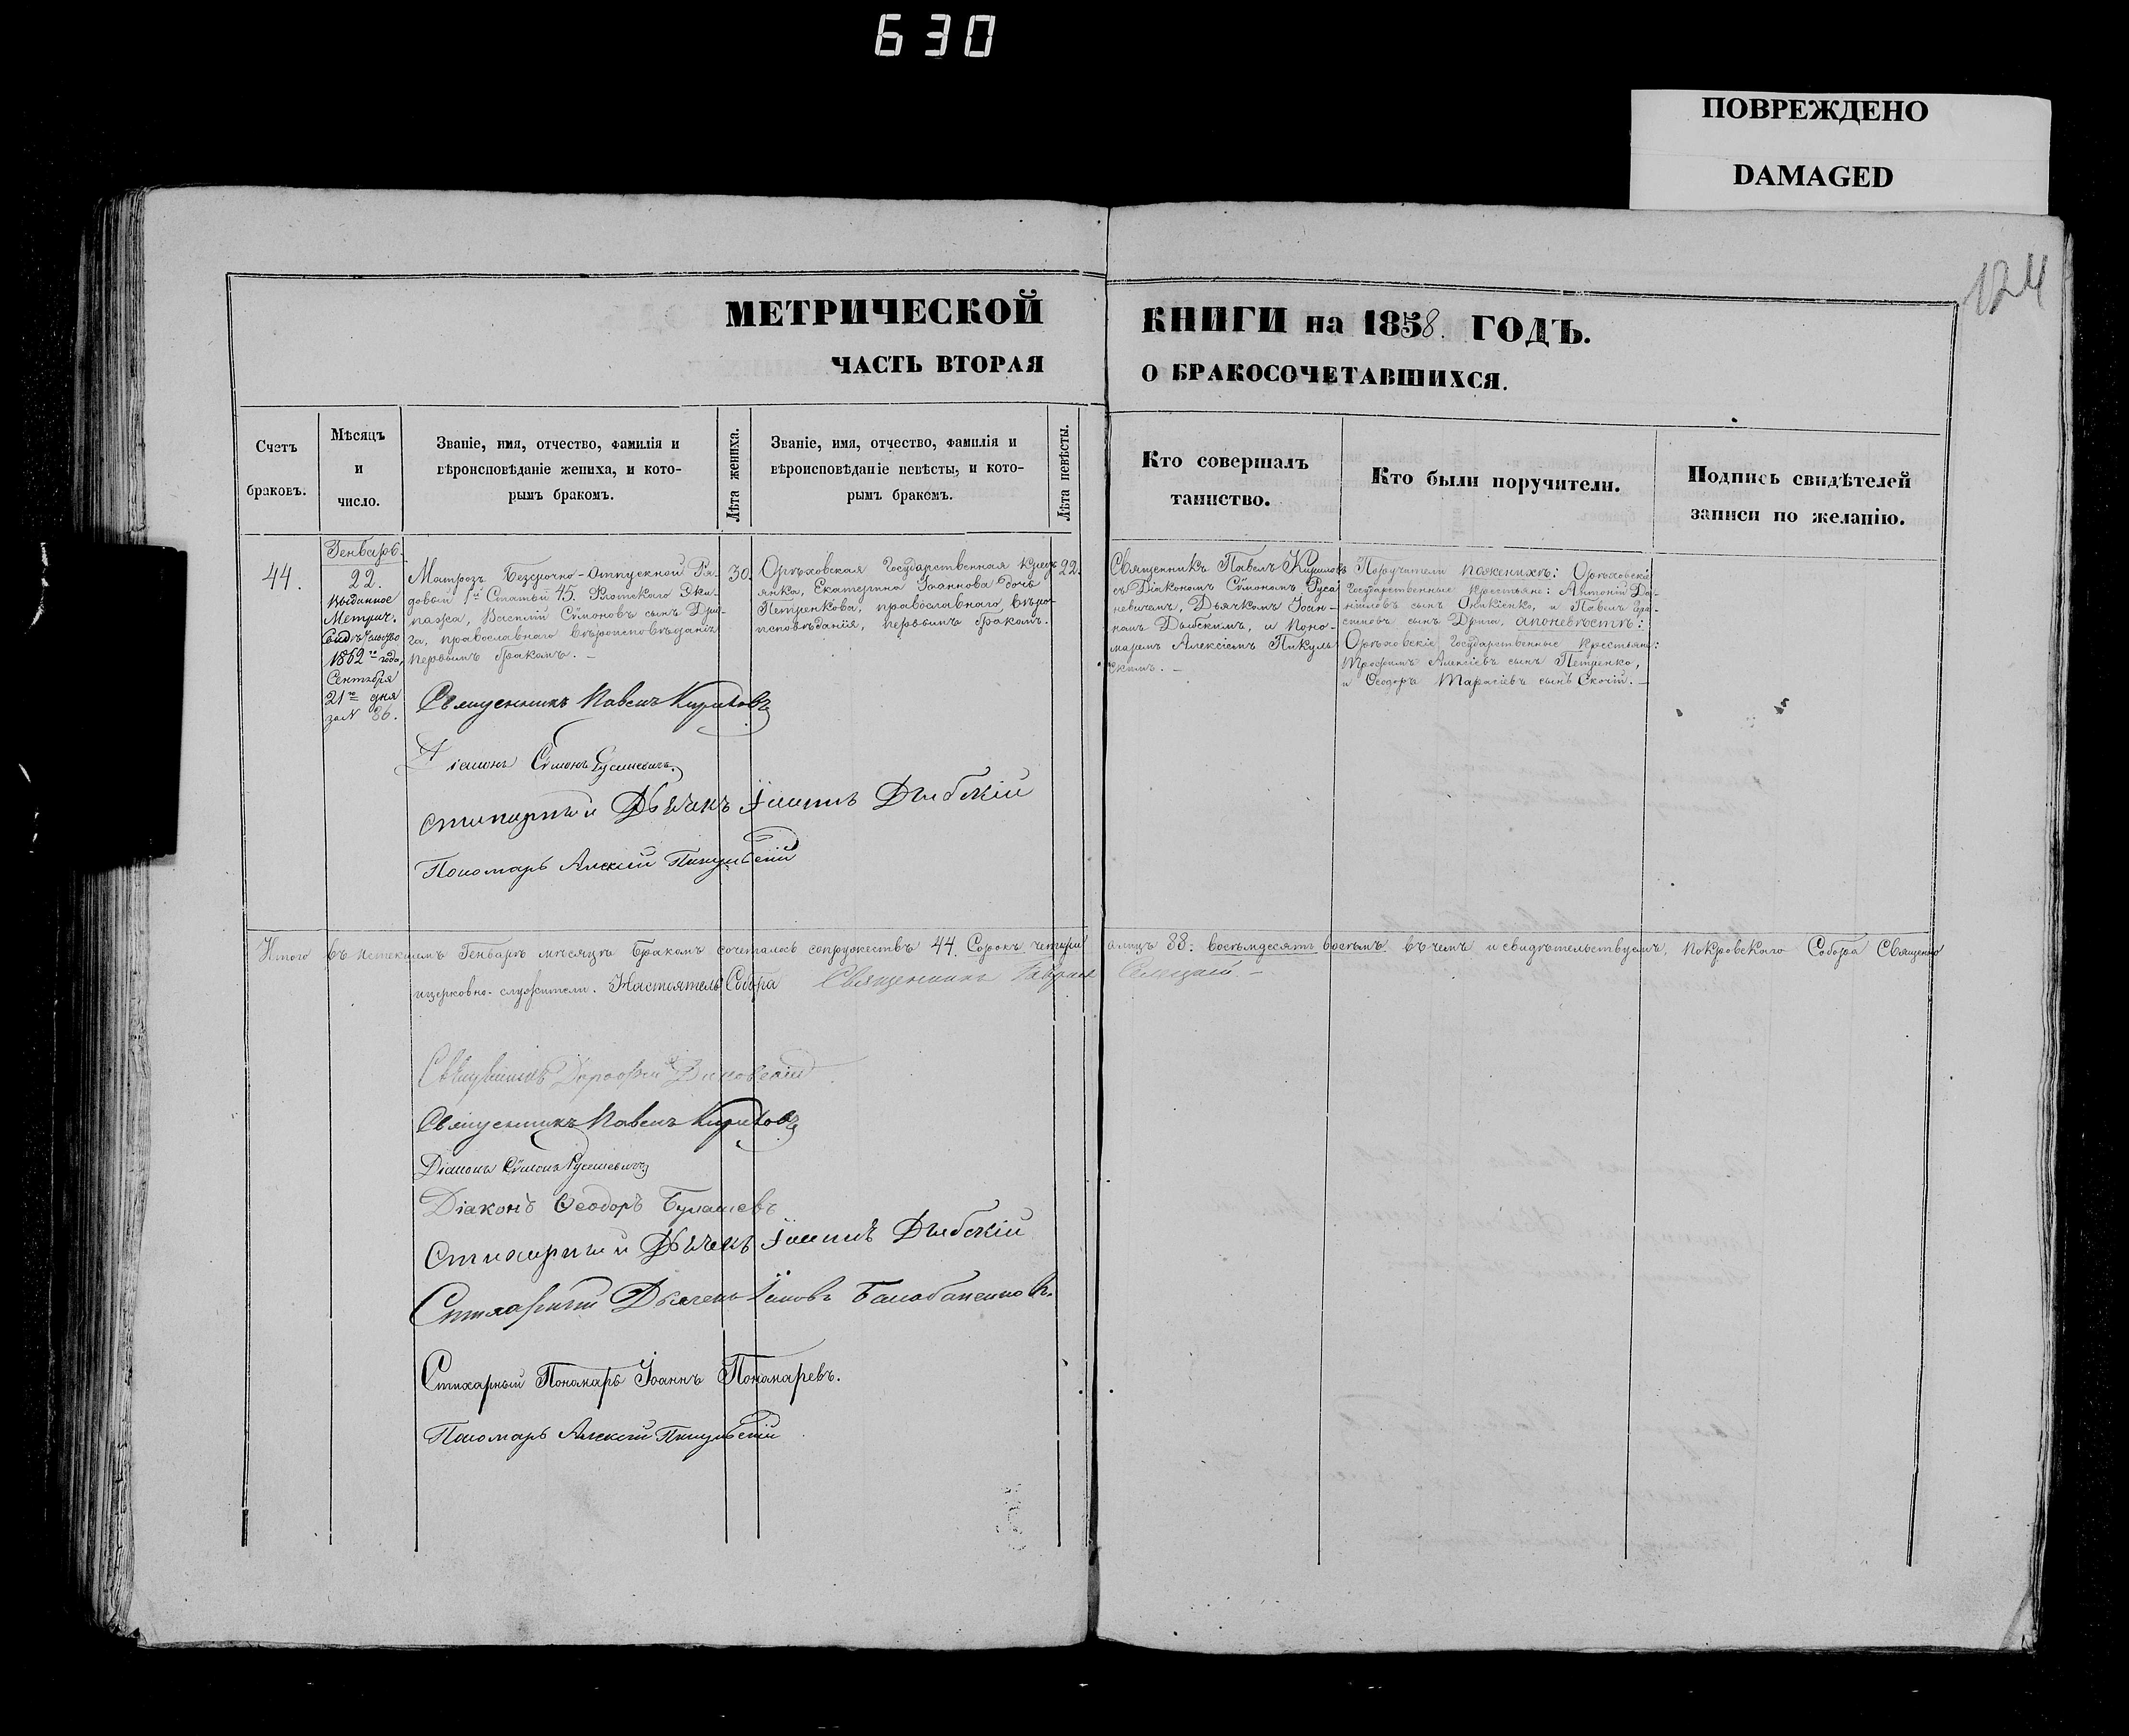 630
ПОВРЕЖДЕНО
DAMAGED
124
МЕТРИЧЕСКОЙ КНИГИ на 1858. ГОДЪ.
ЧАСТЬ ВТОРАЯ О БРАКОСОЧЕТАВШИХСЯ.
Счетъ
браковъ.
Мѣсяцъ
и
число.
Званіе, имя, отчество, фамилія и
вѣроисповѣданіе жениха, и кото-
рымъ бракомъ.
Лѣта жениха.
Званіе, имя, отчество, фамилія и
вѣроисповѣданіе невѣсты, и кото-
рымъ бракомъ.
Лѣта невѣсты.
Кто совершалъ
таинство.
Кто были поручители.
Подпись свидѣтелей
записи по желанію.
44.
Генварь.
22.
Выданное
Метрич.
Свидѣтельство
1862 го года,
Сентября
21 го дня
за N 86.
Матрозъ Безсрочно-Отпускной Ря-
довый 1й Статьи 45. Флотскаго Эки-
пажа, Василій Сѵмоновъ сынъ Дри-
га, православнаго вѣроисповѣданія
первымъ бракомъ. –
30.
Орѣховская Государственная Крест-
янка, Екатерина Іоаннова дочь
Петренкова, православнаго вѣро-
исповѣданія, первымъ бракомъ.
22.
Священникъ Павелъ Кириловъ
съ Діакономъ Сѵмономъ Руса
невичемъ, Дьячкомъ Іоан-
номъ Дыбскимъ, и Поно-
маремъ Алексіемъ Пикуль
скимъ. –
Поручители пожениху: Орѣховскіе
Государственные Крестьяне: Антоній Да-
ніиловъ сынъ Оникіенко, и Павелъ
сынъ Дрига, апоневѣстѣ:
Орѣховскіе Государственные Крестьяне:
Трофимъ Алексіевъ сынъ Петренко,
и Ѳеодоръ Тарасіевъ сынъ Скочій. –
Священникъ Павелъ Кириловъ
Діаконъ Сѵмонъ Русаневичъ
Стихарный Дьячекъ Іоаннъ Дыбскій
Пономарь Алексій Пикульскій
Итого въ истекшемъ Генварѣ мѣсяцѣ бракомъ сочеталось супружествъ 44. Сорокъ четыре а лицъ 88: восемьдесятъ восемъ въ чемъ и свидѣтельствуемъ, Покровскаго Собора Священно
ицерковно-служители. Настоятель Собора Священникъ
Священникъ
Священникъ Павелъ Кириловъ
Діаконъ Сѵмонъ Русаневичъ
Діаконъ Ѳеодоръ Булашевъ
Стихарный Дьячекъ Іоаннъ Дыбскій
Стихарный Дьячекъ Іаковъ
Стихарный Пономарь Іоаннъ Пономаревъ.
Пономарь Алексій Пикульскій